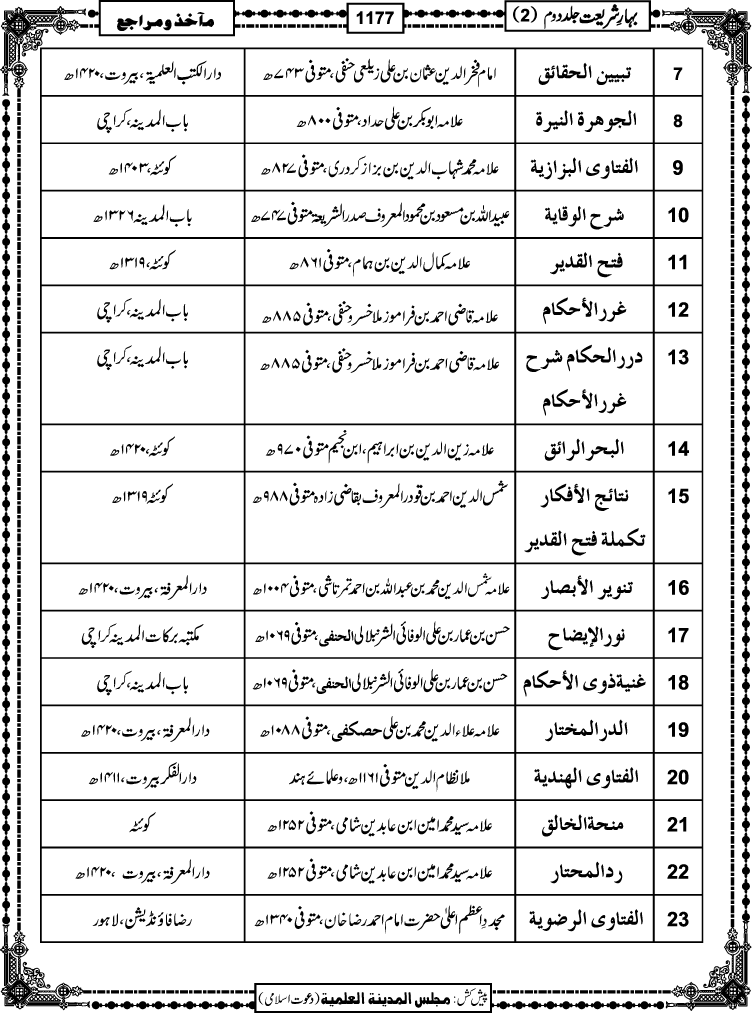 بہارِ شریعت جلد دوم (2)
1177
مآخذ و مراجع
7 تبيين الحقائق امام فخر الدین عثمان بن علی زیلعی حنفی، متوفی ۷۴۳ھ دار الکتب العلمیۃ، بیروت، ۱۴۲۰ھ
8 الجوهرة النيرة علامہ ابوبکر بن علی حداد، متوفی ۸۰۰ھ باب المدینہ، کراچی
9 الفتاوى البزازية علامہ محمد شہاب الدین بن بزاز کردری، متوفی ۸۲۷ھ کوئٹہ، ۱۴۰۳ھ
10 شرح الوقاية عبید اللہ بن مسعود بن محمود المعروف صدر الشریعۃ، متوفی ۷۴۷ھ باب المدینہ ۱۳۲۶ھ
11 فتح القدير علامہ کمال الدین بن ہمام، متوفی ۸۶۱ھ کوئٹہ، ۱۳۱۹ھ
12 غرر الأحكام علامہ قاضی احمد بن فراموز ملا خسرو حنفی، متوفی ۸۸۵ھ باب المدینہ، کراچی
13 درر الحكام شرح علامہ قاضی احمد بن فراموز ملا خسرو حنفی، متوفی ۸۸۵ھ باب المدینہ، کراچی
غرر الأحكام
14 البحر الرائق علامہ زین الدین بن ابراہیم، ابن نجیم متوفی ۹۷۰ھ کوئٹہ، ۱۴۲۰ھ
15 نتائج الأفكار شمس الدین احمد بن قودر المعروف بقاضی زادہ متوفی ۹۸۸ھ کوئٹہ ۱۳۱۹ھ
تكملة فتح القدير
16 تنوير الأبصار علامہ شمس الدین محمد بن عبد اللہ بن احمد تمرتاشی، متوفی ۱۰۰۴ھ دار المعرفۃ، بیروت، ۱۴۲۰ھ
17 نور الإيضاح حسن بن عمار بن علی الوفائی الشرنبلالی الحنفی، متوفی ۱۰۶۹ھ مکتبہ برکات المدینہ کراچی
18 غنية ذوى الأحكام حسن بن عمار بن علی الوفائی الشرنبلالی الحنفی، متوفی ۱۰۶۹ھ باب المدینہ، کراچی
19 الدر المختار علامہ علاء الدین محمد بن علی حصکفی، متوفی ۱۰۸۸ھ دار المعرفۃ، بیروت، ۱۴۲۰ھ
20 الفتاوى الهندية ملا نظام الدین متوفی ۱۱۶۱ھ، وعلمائے ہند دار الفکر بیروت، ۱۴۱۱ھ
21 منحة الخالق علامہ سید محمد امین ابن عابدین شامی، متوفی ۱۲۵۲ھ کوئٹہ
22 رد المحتار علامہ سید محمد امین ابن عابدین شامی، متوفی ۱۲۵۲ھ دار المعرفۃ، بیروت ،۱۴۲۰ھ
23 الفتاوى الرضوية مجدد اعظم اعلیٰ حضرت امام احمد رضا خان، متوفی ۱۳۴۰ھ رضا فاؤنڈیشن، لاہور
پیش کش: مجلس المدینۃ العلمیۃ (دعوت اسلامی)